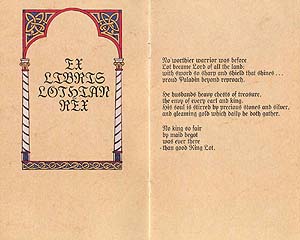 EX
LIBRIS
LOTHIAN
REX
No worthier warrior was before
Lot became Lord of all the land;
with sword so sharp and shield that shines . . .
proud Paladin beyond reproach.
He husbands heavy chests of treasure,
the envy of every earl and king.
His soul is stirred by precious stones and silver,
and gleaming gold which daily he doth gather.
No king so fair
by maid begot
was ever there
than good King Lot.